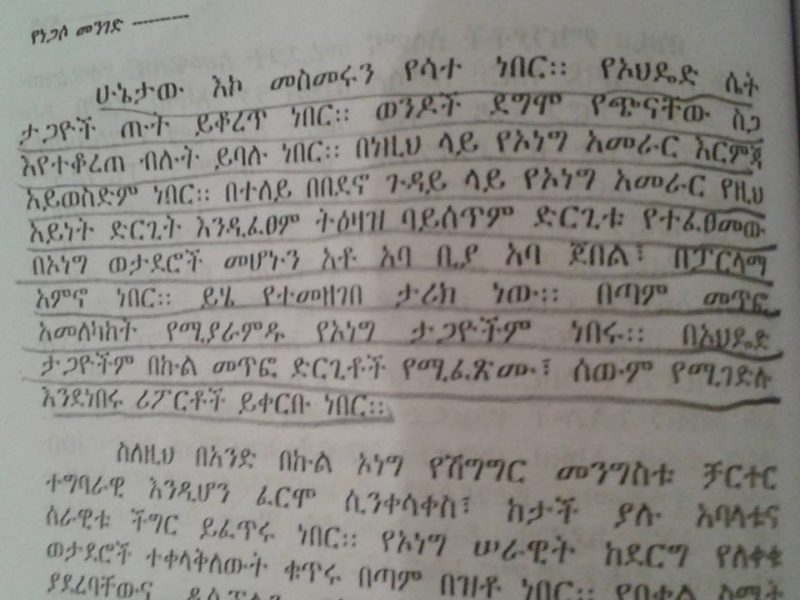 የነጋሶ መንገድ ----------
ሁኔታው እኮ መስመሩን የሳተ ነበር። የኦህዴድ ሴት
ታጋዮች ጡት ይቆረጥ ነበር። ወንዶች ደግሞ የጭናቸው ስጋ
እየተቆረጠ ብሉት ይባሉ ነበር። በነዚህ ላይ የኦነግ አመራር እርምጃ
አይወስድም ነበር። በተለይ በበደኖ ጉዳይ ላይ የኦነግ አመራር የዚህ
አይነት ድርጊት እንዲፈፀም ትዕዛዝ ባይሰጥም ድርጊቱ የተፈፀመው
በኦነግ ወታደሮች መሆኑን አቶ አባ ቢያ አባ ጆበል፣ በፓርላማ
አምኖ ነበር። ይሄ የተመዘገበ ታሪክ ነው። በጣም መጥፎ
አመለካከት የሚያራምዱ የኦነግ ታጋዮችም ነበሩ። በኦህዴድ
ታጋዮችም በኩል መጥፎ ድርጊቶች የሚፈጽሙ፣ ሰውም የሚገድሉ
እንደነበሩ ሪፖርቶች ይቀርቡ ነበር።
ስለዚህ በአንድ በኩል ኦነግ የሽግግር መንግስቱ ቻርተር
ተግባራዊ እንዲሆን ፈርሞ ሲንቀሳቀስ፣ ከታች ያሉ አባላቱና
ሰራዊቱ ችግር ይፈጥሩ ነበር። የኦነግ ሠራዊት ከደርግ የለቀቁ
ወታደሮች ተቀላቅለውት ቁጥሩ በጣም በዝቶ ነበር። የበቀል ስሜት
ያደረባቸውና